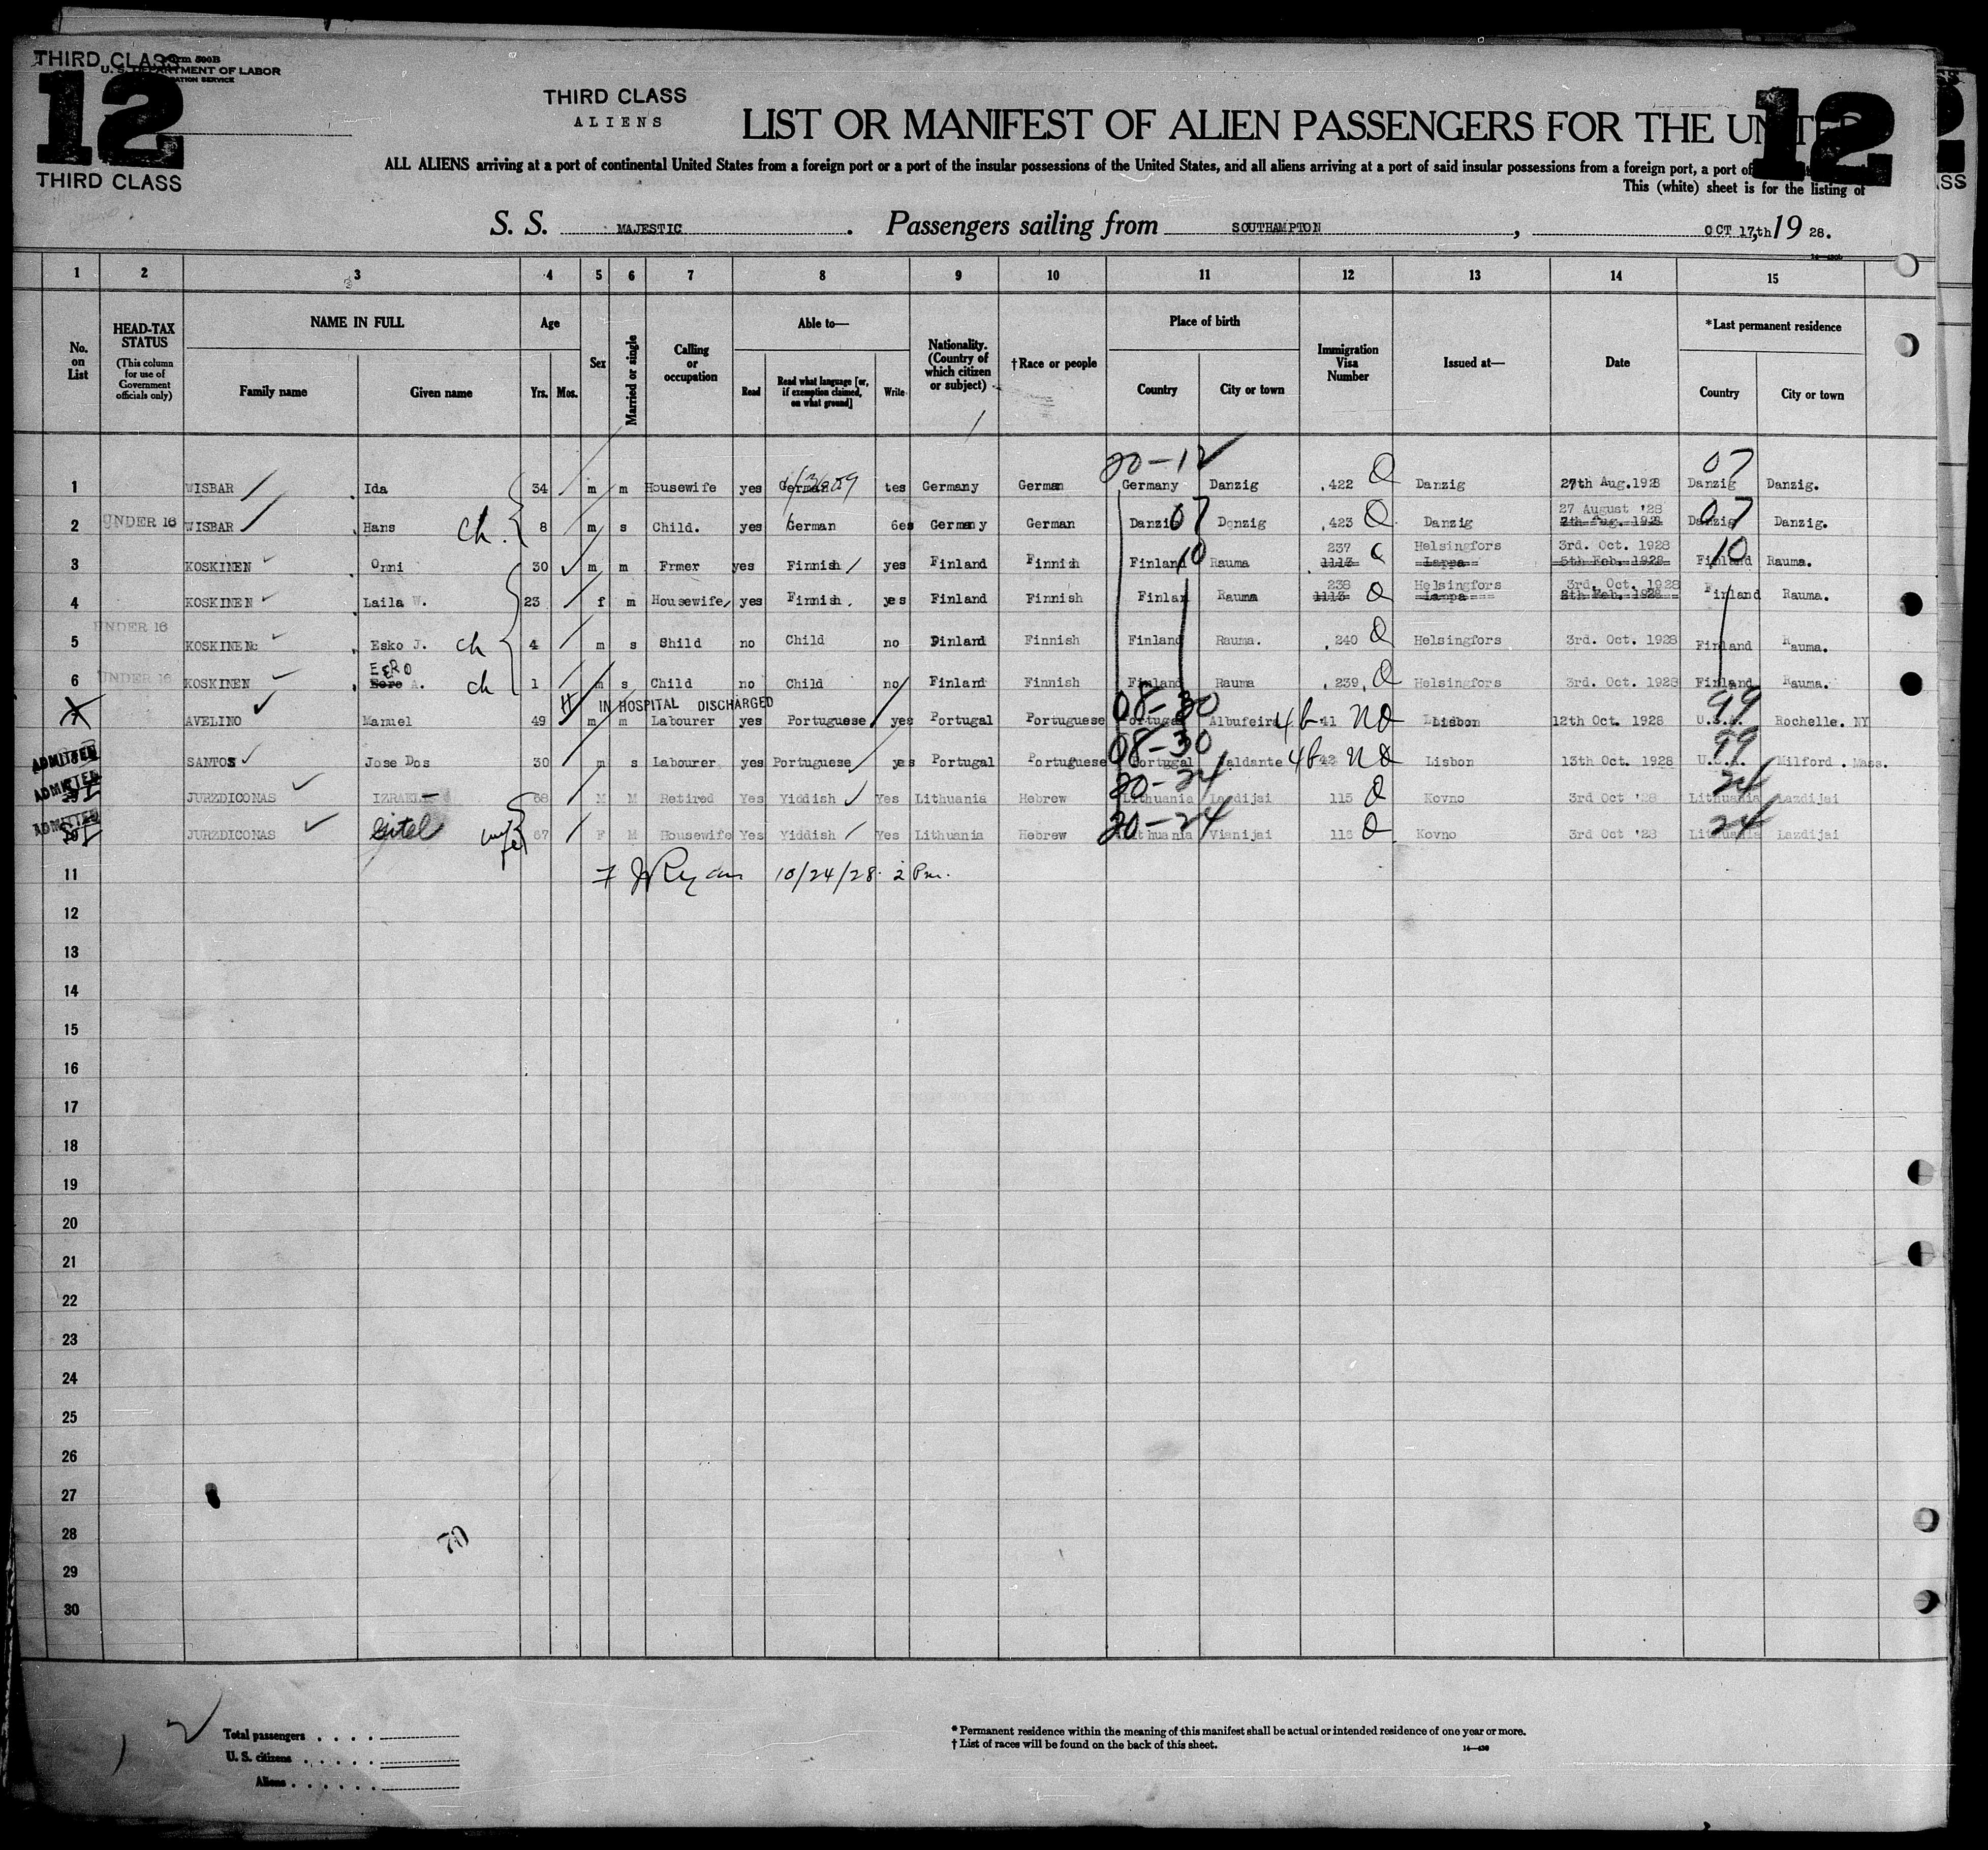 THIRD CLASS
Form 500B
U. S. DEPARTMENT OF LABOR
12
THIRD CLASS
THIRD CLASS
ALIENS
LIST OR MANIFEST OF ALIEN PASSENGERS FOR THE UNITED
12
ALL ALIENS arriving at a port of continental United States from a foreign port or a port of the insular possessions of the United States, and all aliens arriving at a port of said insular possessions from a foreign port, a port of
This (white) sheet is for the listing of
S. S. MAJESTIC. Passengers sailing from SOUTHAMPTON, OCT 17,th 19 28.
1 2 3 4 5 6 7 8 9 10 11 12 13 14 15
No. on List
HEAD-TAX STATUS
(This column for use of Government officials only)
NAME IN FULL
Family name Given name
Age
Yrs. Mos.
Sex
Married or single
Calling or occupation
Able to—
Read
Read what language [or, if exemption claimed, on what ground]
Write
Nationality. (Country of which citizen or subject)
†Race or people
Place of birth
Country City or town
Immigration Visa Number
Issued at—
Date
*Last permanent residence
Country City or town
20-12 07
1 WISBAR Ida 34 m m Housewife yes German tes Germany German Germany Danzig 422 Q Danzig 27th Aug.1928 Danzig Danzig.
27 August '28
2 UNDER 16 WISBAR Hans ch. 8 m s Child. yes German 6es Germany German Danzig 07 Donzig 423 Q Danzig 2th Aug. 1928 Danzig 07 Danzig.
237 Helsingfors 3rd. Oct. 1928
3 KOSKINEN Onni 30 m m Frmer yes Finnish yes Finland Finnish Finland 10 Rauma 1113 Lappa 5th Feb. 1928 Finland 10 Rauma.
238 Helsingfors 3rd. Oct. 1928
4 KOSKINEN Laila W. 23 f m Housewife yes Finnish. yes Finland Finnish Finlan Rauma 1113 Q Lappa 8th Feb. 1928 Finland Rauma.
UNDER 16
5 KOSKINEN Esko J. ch 4 m s Shild no Child no Finland Finnish Finland Rauma. 240 Q Helsingfors 3rd. Oct. 1928 Finland Rauma.
EERO
6 UNDER 16 KOSKINEN Eero A. ch 1 m s Child no Child no Finland Finnish Finland Rauma 239, Q Helsingfors 3rd. Oct. 1928 Finland Rauma.
H IN HOSPITAL DISCHARGED 08-30 99
AVELINO Manuel 49 m m Labourer yes Portuguese yes Portugal Portuguese Portugal Albufeira 4b 41 NQ Lisbon 12th Oct. 1928 U.S.A. Rochelle. NY
ADMITTED 08-30 99
SANTOS Jose Dos 30 m s Labourer yes Portuguese yes Portugal Portuguese Portugal aldante 4b 42 NQ Lisbon 13th Oct. 1928 U.S.A. Milford. Mass.
ADMITTED 20-24 24
JURZDICONAS IZRAEL 68 M M Retired Yes Yiddish Yes Lithuania Hebrew Lithuania Lazdijai 115 Q Kovno 3rd Oct '28 Lithuania Lazdijai
ADMITTED 20-24 24
JURZDICONAS Gitel wife 67 F M Housewife Yes Yiddish Yes Lithuania Hebrew Lithuania Vianijai 116 Q Kovno 3rd Oct '28 Lithuania Lazdijai
11 Ryan 10/24/28. 2 Pm.
12
13
14
15
16
17
18
19
20
21
22
23
24
25
26
27
28 70
29
30
Total passengers . . . .
U. S. citizens . . . . .
Aliens . . . . . .
* Permanent residence within the meaning of this manifest shall be actual or intended residence of one year or more.
† List of races will be found on the back of this sheet.
14—430